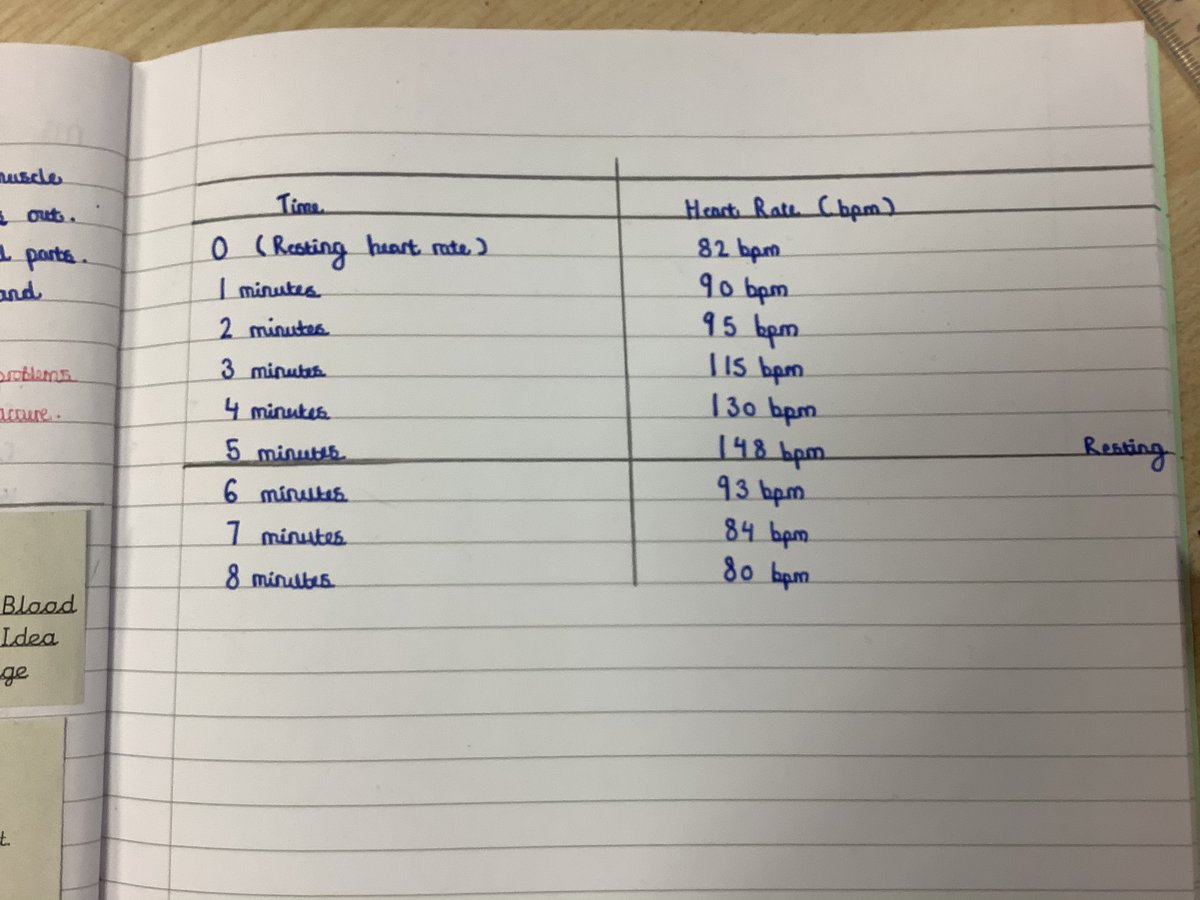 muscle
out.
parts.
and
problems
accure.
Blood
Idea
ge
t.
Time Heart Rate (bpm)
0 (Resting heart rate) 82 bpm
1 minutes 90 bpm
2 minutes 95 bpm
3 minutes 115 bpm
4 minutes 130 bpm
5 minutes 148 bpm Resting
6 minutes 93 bpm
7 minutes 84 bpm
8 minutes 80 bpm